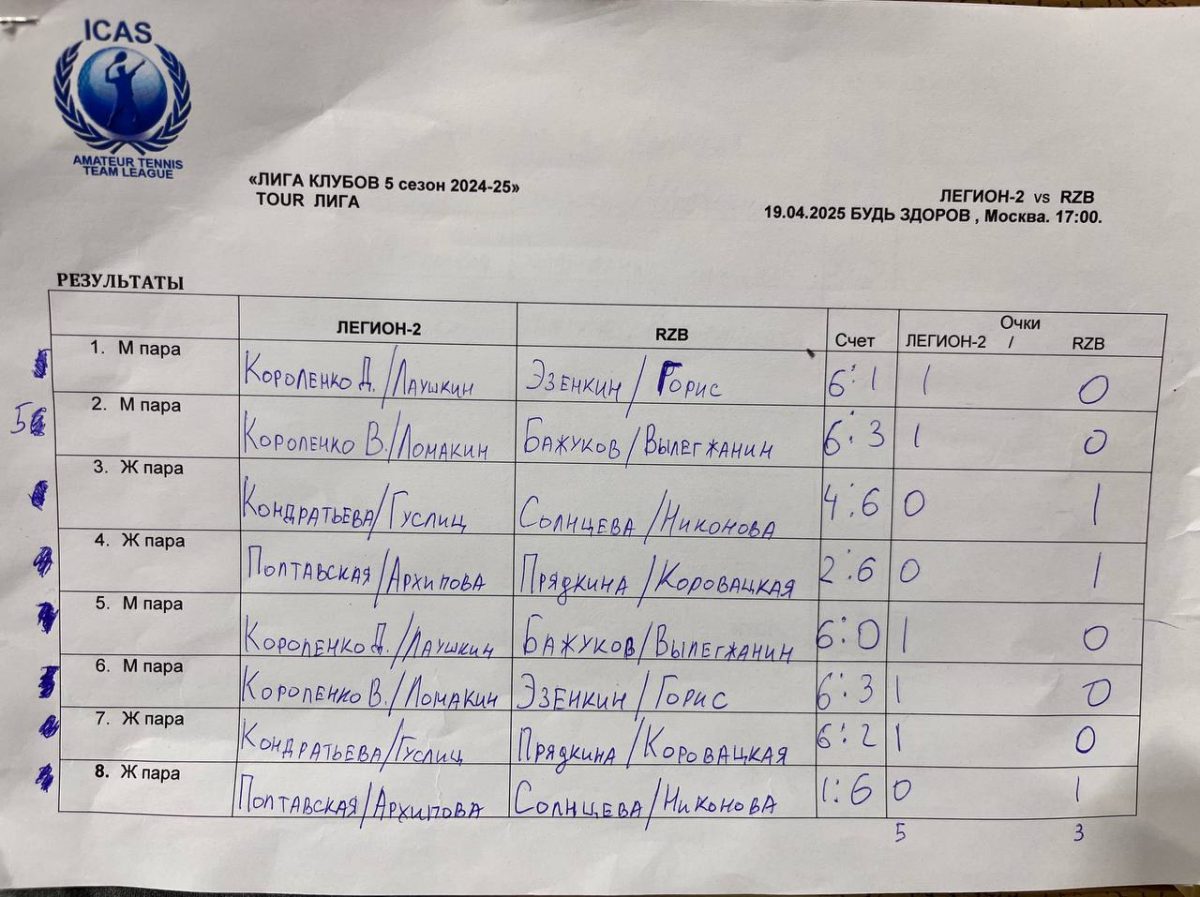 ICAS
AMATEUR TENNIS
TEAM LEAGUE
«ЛИГА КЛУБОВ 5 сезон 2024-25»
TOUR ЛИГА
ЛЕГИОН-2 vs RZB
19.04.2025 БУДЬ ЗДОРОВ , Москва. 17:00.
РЕЗУЛЬТАТЫ
ЛЕГИОН-2 RZB Счет Очки
ЛЕГИОН-2 / RZB
1. М пара Короленко Д./Лаушкин Эзенкин/Горис 6:1 1 0
2. М пара Короленко В./Ломакин Бажуков/Вылегжанин 6:3 1 0
3. Ж пара Кондратьева/Гуслиц Солнцева/Никонова 4:6 0 1
4. Ж пара Полтавская/Архипова Прядкина/Коровацкая 2:6 0 1
5. М пара Короленко Д./Лаушкин Бажуков/Вылегжанин 6:0 1 0
6. М пара Короленко В./Ломакин Эзенкин/Горис 6:3 1 0
7. Ж пара Кондратьева/Гуслиц Прядкина/Коровацкая 6:2 1 0
8. Ж пара Полтавская/Архипова Солнцева/Никонова 1:6 0 1
5 3